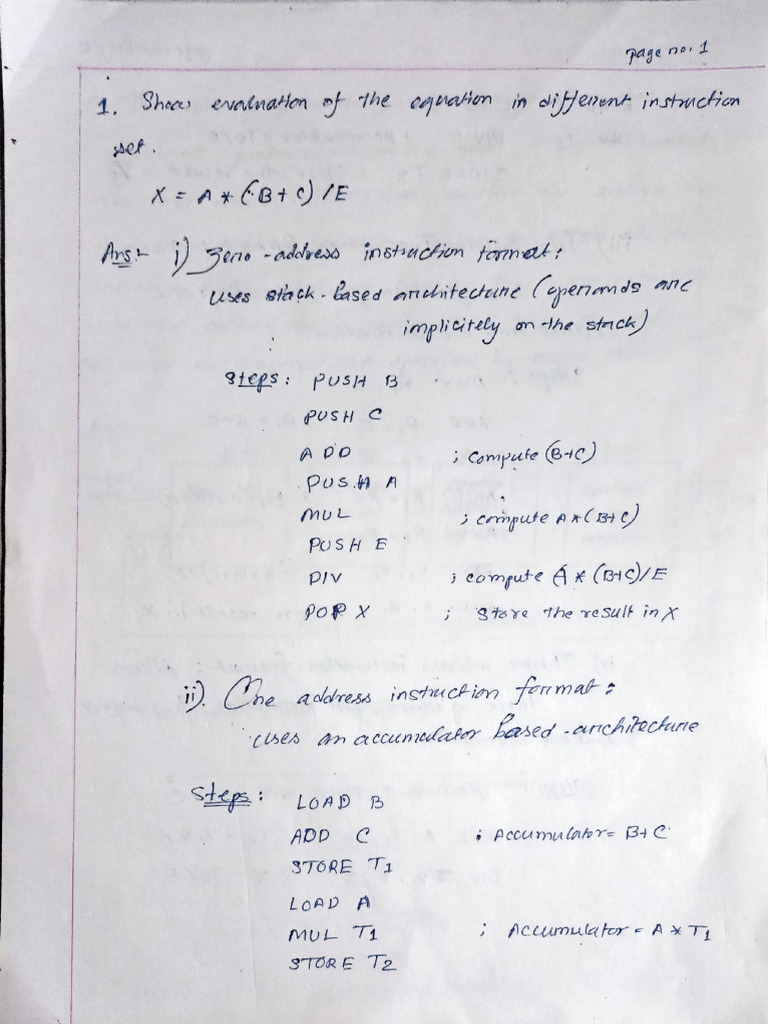 page no. 1
1. Show evaluation of the equation in different instruction
set.
X = A * (B+C) / E
Ans:- i) Zero-address instruction format:
uses stack-based architecture (operands are
implicitely on the stack)
Steps: PUSH B
PUSH C
ADD ; compute (B+C)
PUSH A
MUL ; compute A*(B+C)
PUSH E
DIV ; compute A * (B+C)/E
POP X ; Store the result in X
ii). One address instruction format:
uses an accumulator based-architecture
Steps: LOAD B
ADD C ; Accumulator = B+C
STORE T1
LOAD A
MUL T1 ; Accumulator = A * T1
STORE T2